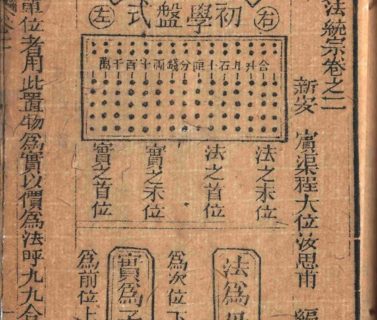 法統宗卷之二
新安 賓渠程大位汝思甫 編
右
初學盤式
左
合升斗石十厘分錢兩十百千萬
法之末位
法之首位
實之末位
實之首位
法爲
爲次位下
實爲子
爲前位上
單位者用此置物爲實以價爲法呼九九合